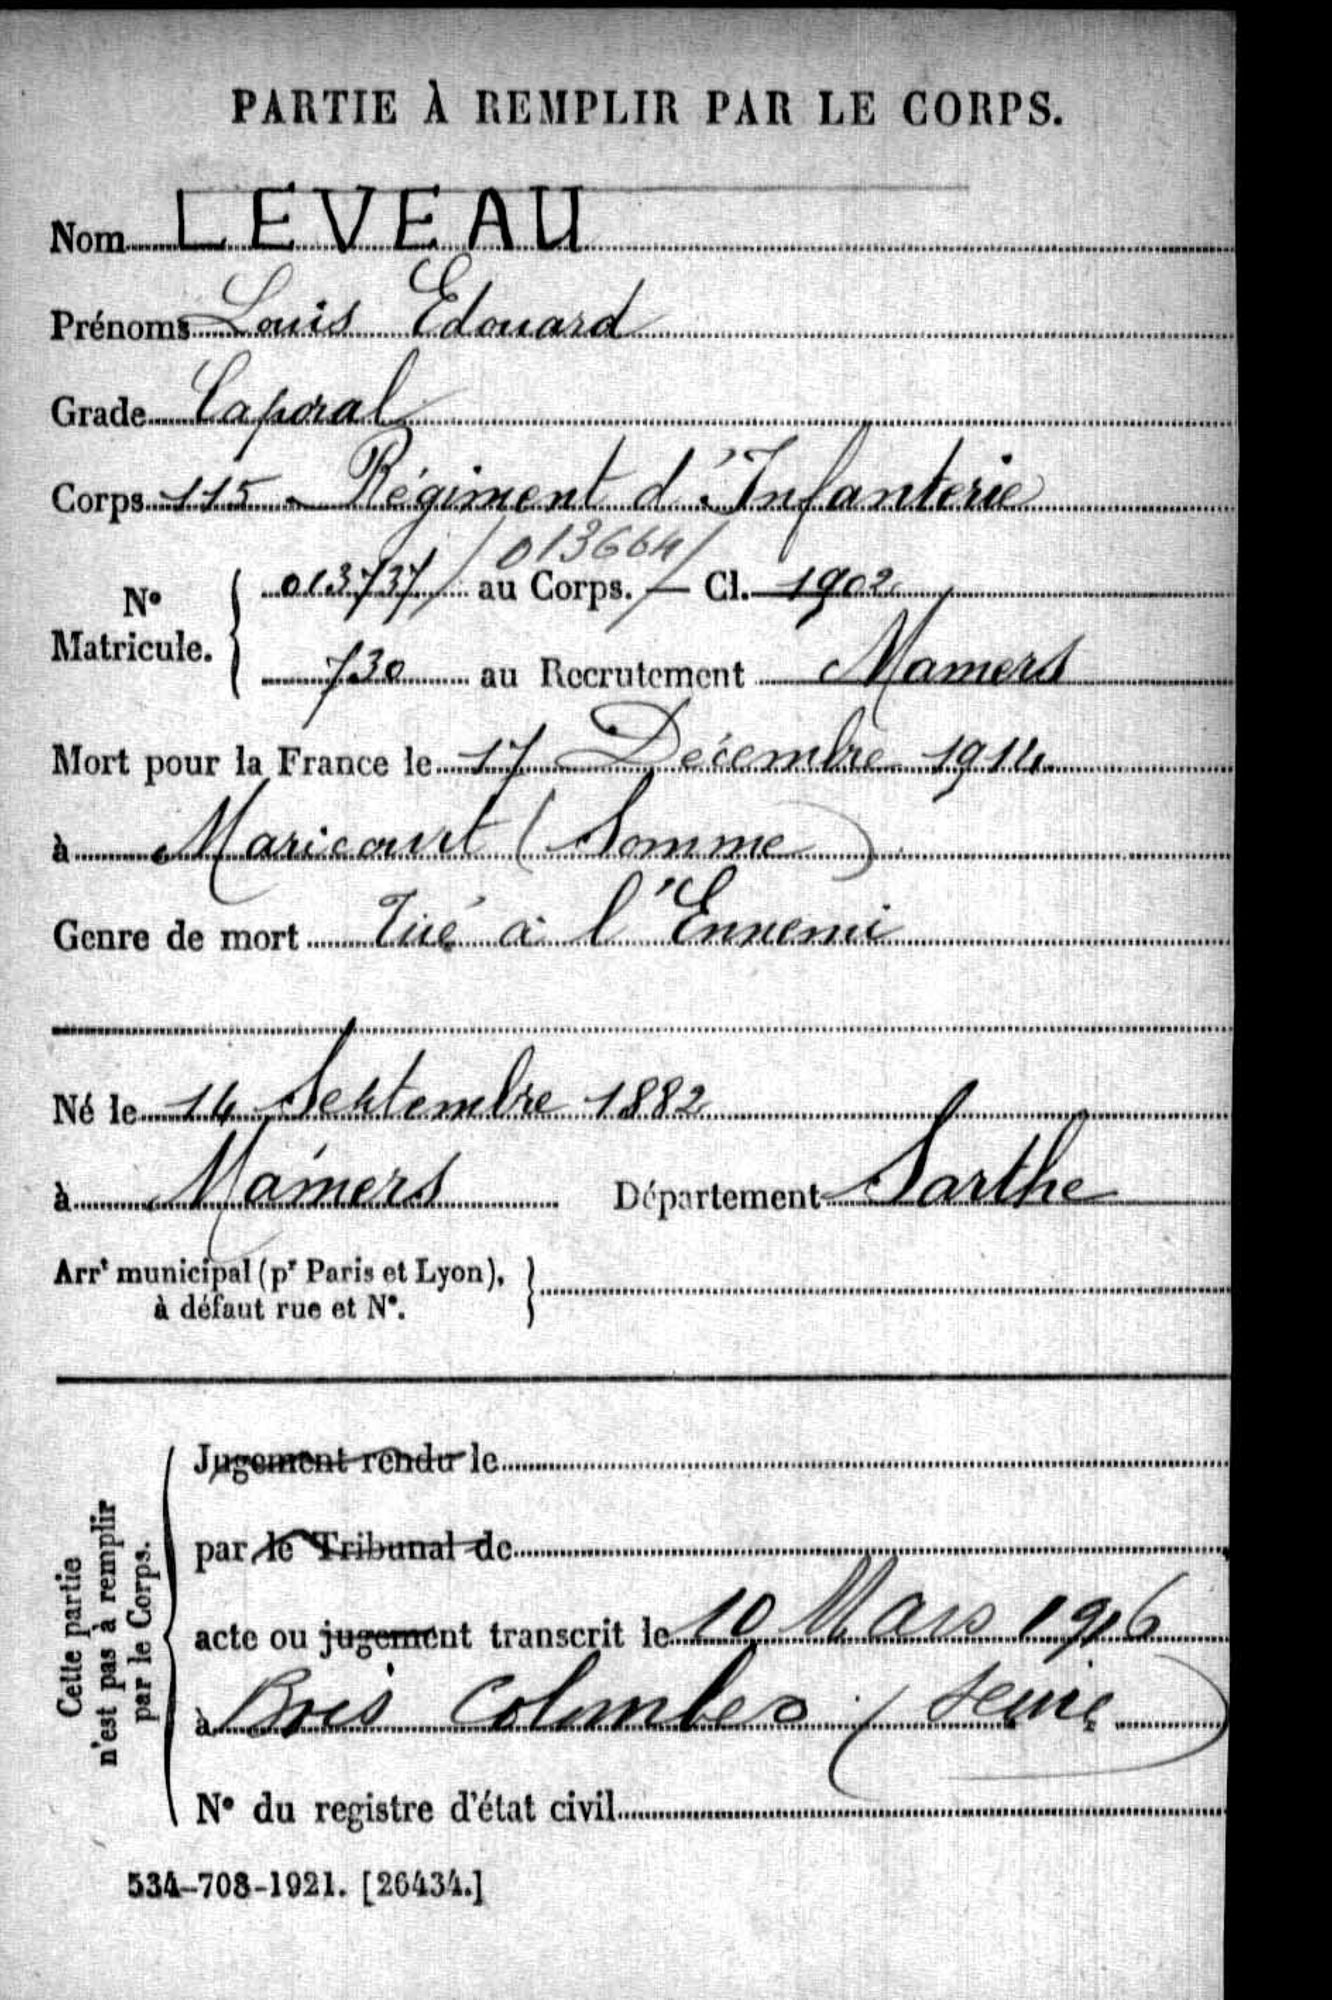 PARTIE À REMPLIR PAR LE CORPS.
Nom LEVEAU
Prénoms Louis Edouard
Grade Caporal
Corps 115 - Régiment d'Infanterie
013664
N° Matricule. 013737 au Corps. — Cl. 1902
730 au Recrutement Mamers
Mort pour la France le 17 Décembre 1914
à Maricourt (Somme)
Genre de mort Tué à l'Ennemi
Né le 14 Septembre 1882
à Mamers Département Sarthe
Arrt municipal (pr Paris et Lyon),
à défaut rue et N°.
Cette partie
n'est pas à remplir
par le Corps.
Jugement rendu le
par le Tribunal de
acte ou jugement transcrit le 10 Mars 1916
à Bois Colombes (Seine)
N° du registre d'état civil
534-708-1921. [26434.]